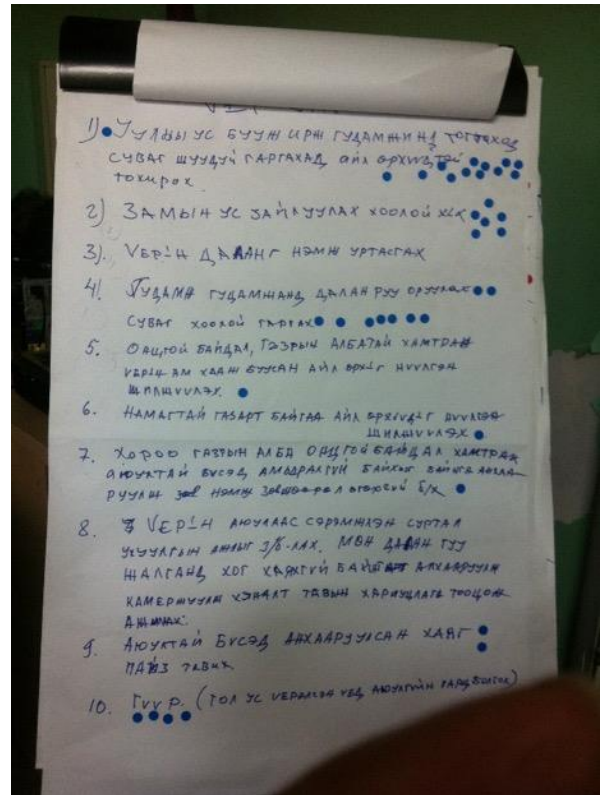 1) Уулны ус бууж ирж гудамжинд тогтоход
суваг шуудуй гаргахад айл өрхүүдтэй
тохирох
2) Замын ус зайлуулах хоолой хийх
3). Үерийн даланг нэмж уртасгах
4! Гудамж гудамжанд далан руу оруулах
суваг хоолой гаргах
5. Онцгой байдал, Газрын албатай хамтран
үерийн ам хааж буусан айл өрхийг нүүлгэн
шилжүүлэх.
6. Намагтай газарт байгаа айл өрхүүдийг нүүлгэн
шилжүүлэх
7. Хороо газрын алба онцгой байдал хамтран
аюултай бүсэд амьдралгүй байхыг
нэмж зөвшөөрөл олгохгүй б/х
8. Үерийн аюулаас сэрэмжлэн сургал
ажлыг з/б-лах. Мөн далан гуу
жалганд хог хаяхгүй анхааруулж
камержуулж хяналт тавьж хариуцлага тооцож
ажиллах.
9. Аюултай бүсэд анхааруулсан хаяг
пайз тавих
10. Гүүр. (Гол ус үерлэсэн үед аюулгүйн гарц болгох)